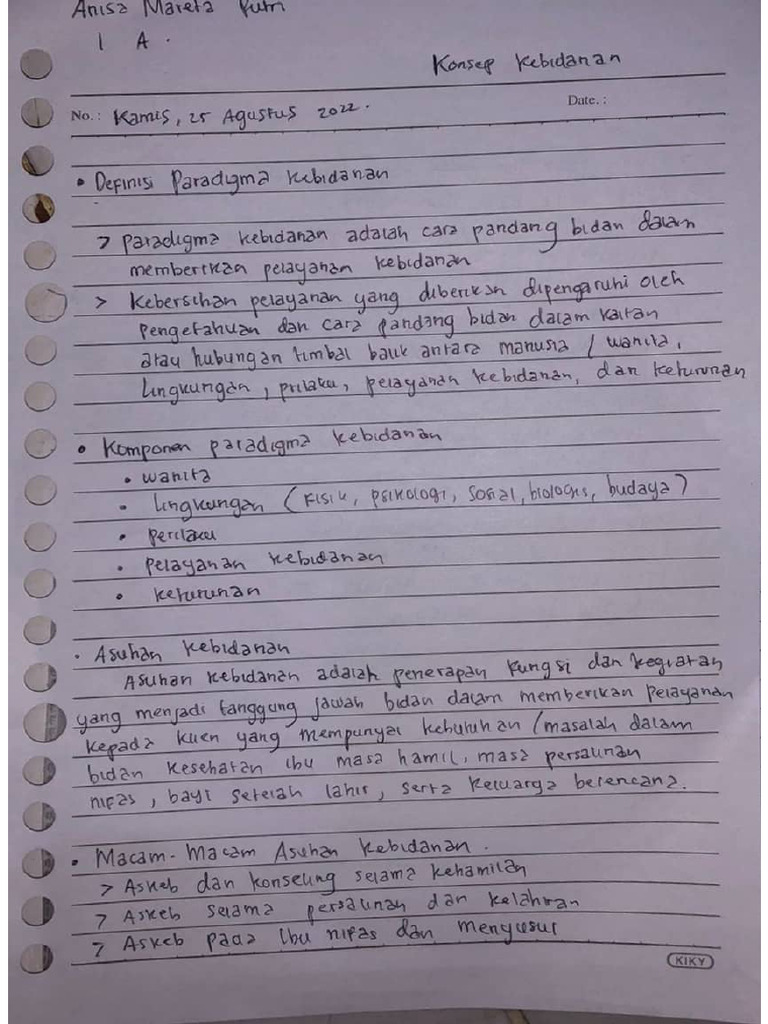 Anisa Mareta Putri
1 A.
Konsep Kebidanan
No.: Kamis, 25 Agustus 2022. Date.:
• Definisi Paradigma Kebidanan
> Paradigma kebidanan adalah cara pandang bidan dalam
memberikan pelayanan kebidanan
> Kebersihan pelayanan yang diberikan dipengaruhi oleh
pengetahuan dan cara pandang bidan dalam kaitan
atau hubungan timbal balik antara manusia / wanita,
lingkungan, prilaku, pelayanan kebidanan, dan keturunan
• Komponen paradigma kebidanan
• wanita
• lingkungan (Fisik, psikologi, Sosial, biologis, budaya)
• perilaku
• pelayanan kebidanan
• keturunan
• Asuhan kebidanan
Asuhan kebidanan adalah penerapan fungsi dan kegiatan
yang menjadi tanggung jawab bidan dalam memberikan pelayanan
kepada klien yang mempunyai kebutuhan / masalah dalam
bidan kesehatan ibu masa hamil, masa persalinan
nipas, bayi setelah lahir, serta keluarga berencana.
• Macam-Macam Asuhan Kebidanan.
> Askeb dan konseling selama kehamilan
> Askeb selama persalinan dan kelahiran
> Askeb pada Ibu nipas dan menyusui
KIKY